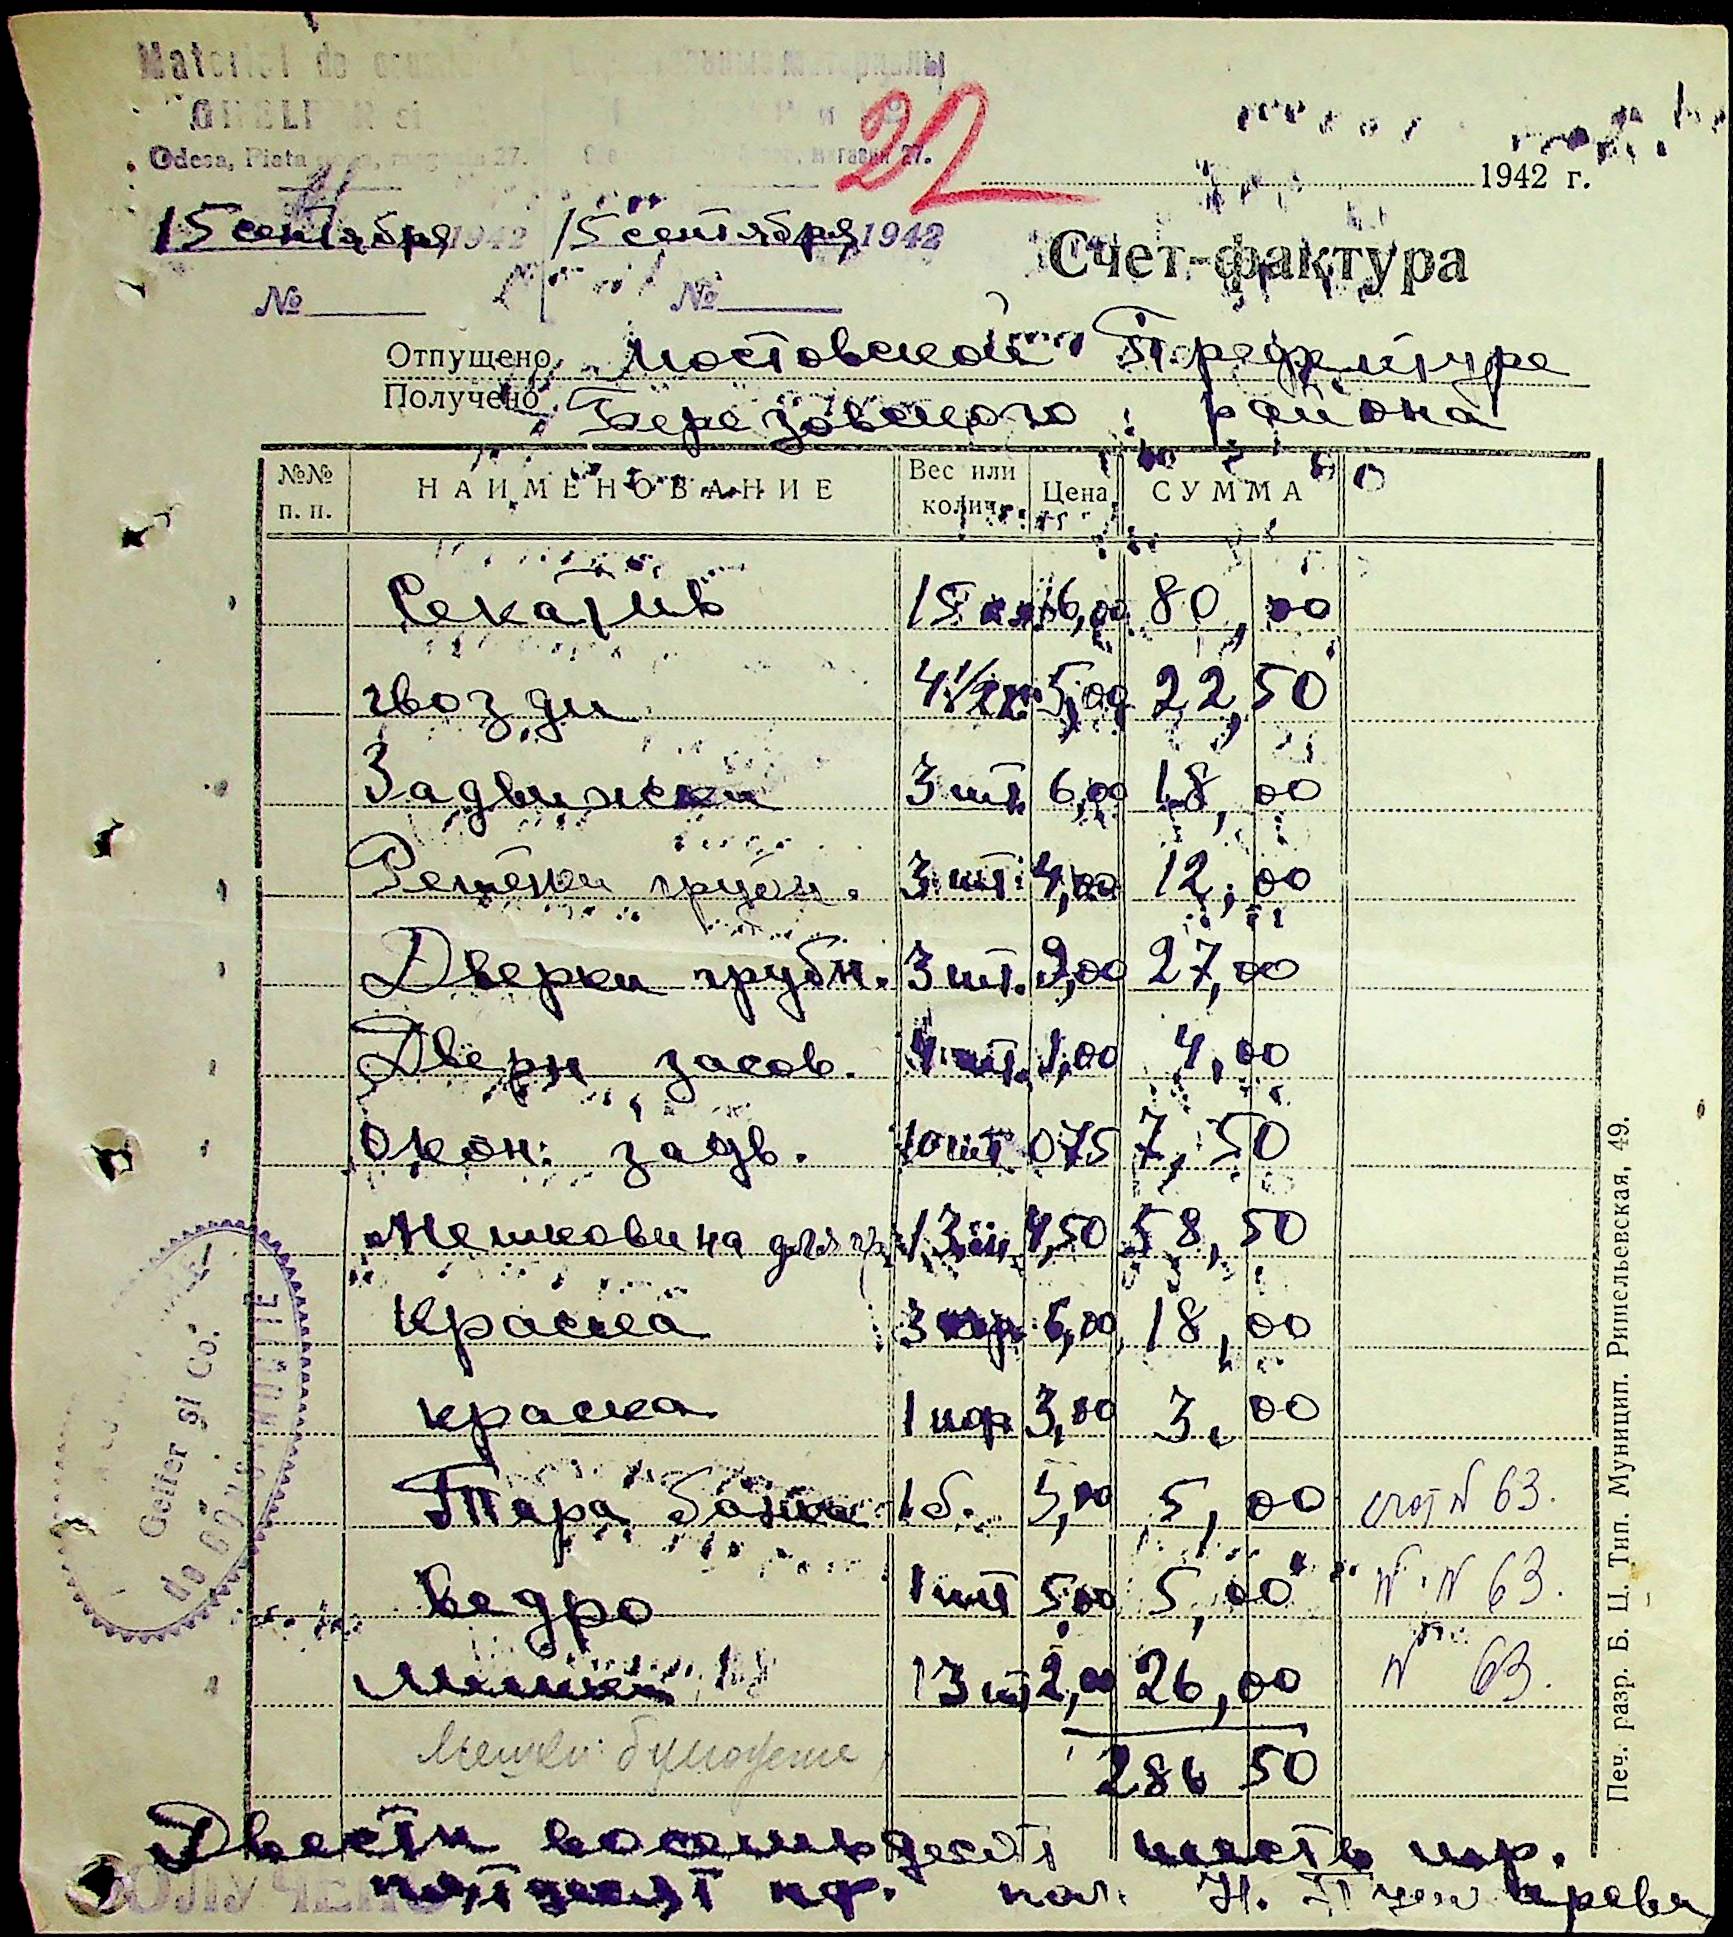 Material de
Odesa, Piata magazia 27. магазин 27.
22
1942 г.
15 сентября 1942 15 сентября 1942
Счет-фактура
№ №
Отпущено Мостовской Префектуре
Получено Березовского района
№№ п. п. НАИМЕНОВАНИЕ Вес или колич. Цена СУММА
15 6,00 80,00
гвозди 4 1/2 кг 5,00 22,50
Задвижки 3 шт. 6,00 18,00
Решетки грубн. 3 шт. 4,00 12,00
Дверки грубн. 3 шт. 9,00 27,00
Дверн засов. 4 шт. 1,00 4,00
Окон. задв. 10 шт 075 7,50
Мешковина для 13 4,50 58,50
Краска 3 6,00 18,00
краска 1 мар 3,00 3,00
Тара банка 1 б. 5,00 5,00 счет N 63.
Ведро 1 шт 5 00 5,00 N 63.
13 шт 2,00 26,00 N 63.
Мешки бумажные
286 50
Двести восемьдесят шесть мар.
пятьдесят пф. пол. Н.
Geller și Co.
Печ. разр. Б. Ц. Тип. Муницип. Ришельевская, 49.